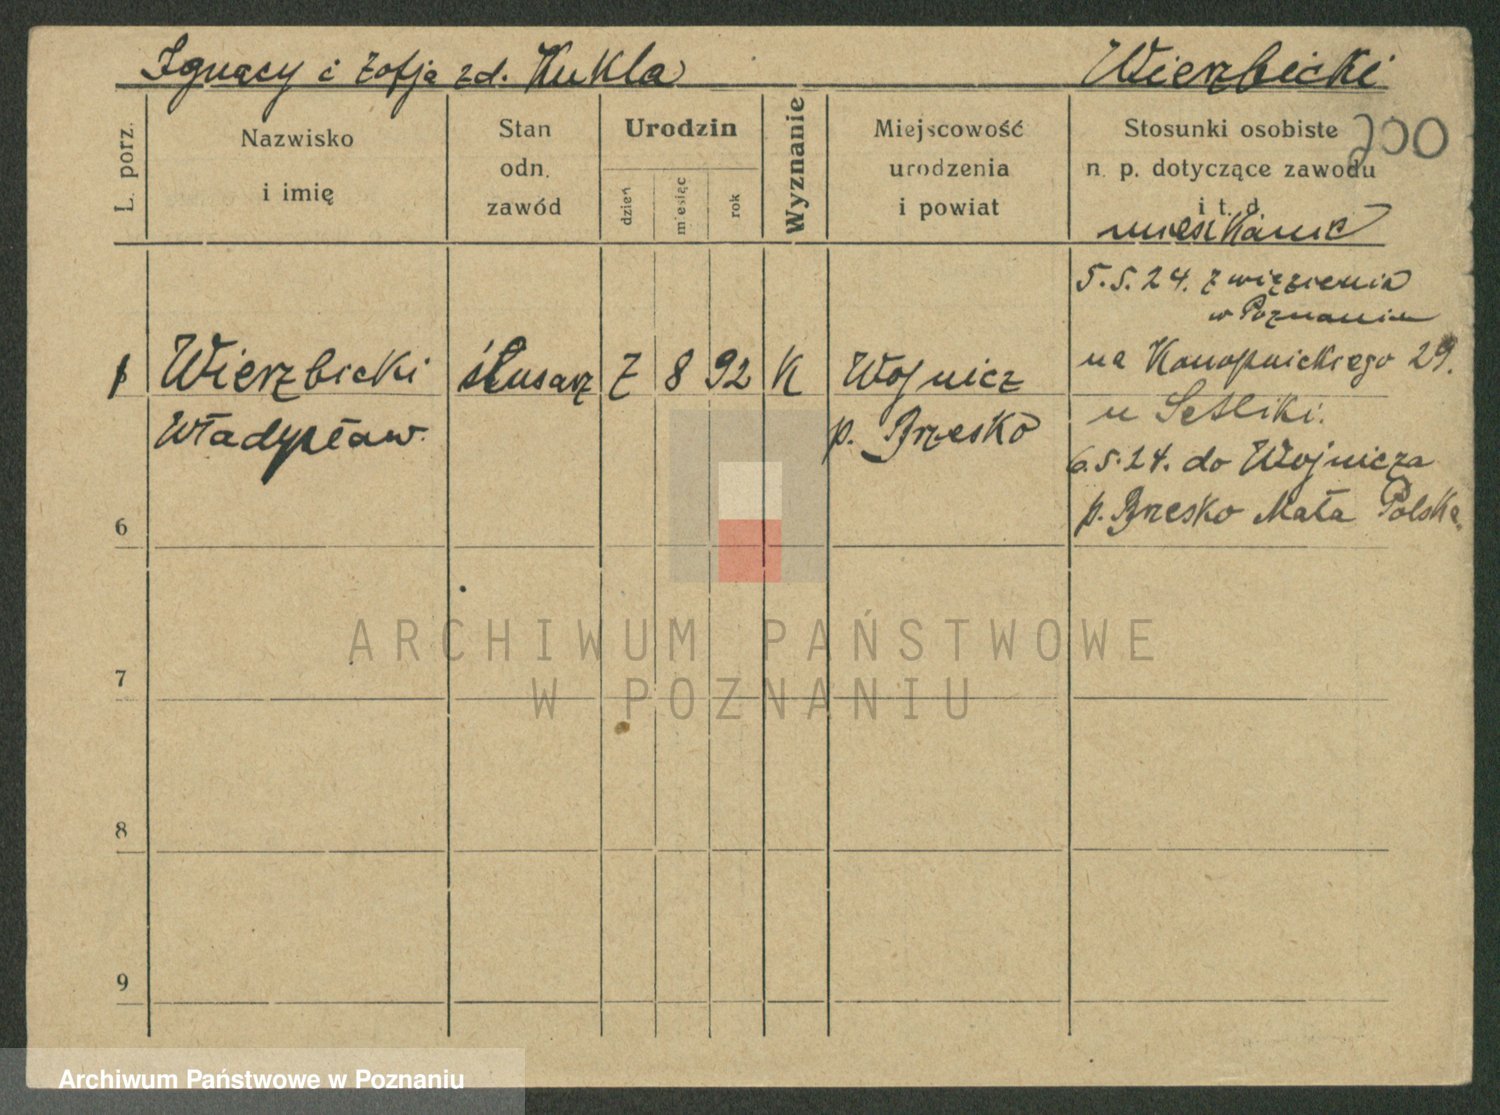 Ignacy i Zofja zd. Kukla
Wierzbicki
200
L. porz.
Nazwisko
i imię
Stan
odn.
zawód
Urodzin
dzień
miesiąc
rok
Wyznanie
Miejscowość
urodzenia
i powiat
Stosunki osobiste
n. p. dotyczące zawodu
i t. d.
mieszkanie
5.5.24. z więzienia
w Poznaniu
1 Wierzbicki ślusarz 7 8 92 K Wojnicz na Konopnickiego 29.
Władysław p. Brzesko u
6.5.24. do Wojnicza
p. Brzesko Mała Polska.
6
7
8
9
ARCHIWUM PAŃSTWOWE
W POZNANIU
Archiwum Państwowe w Poznaniu